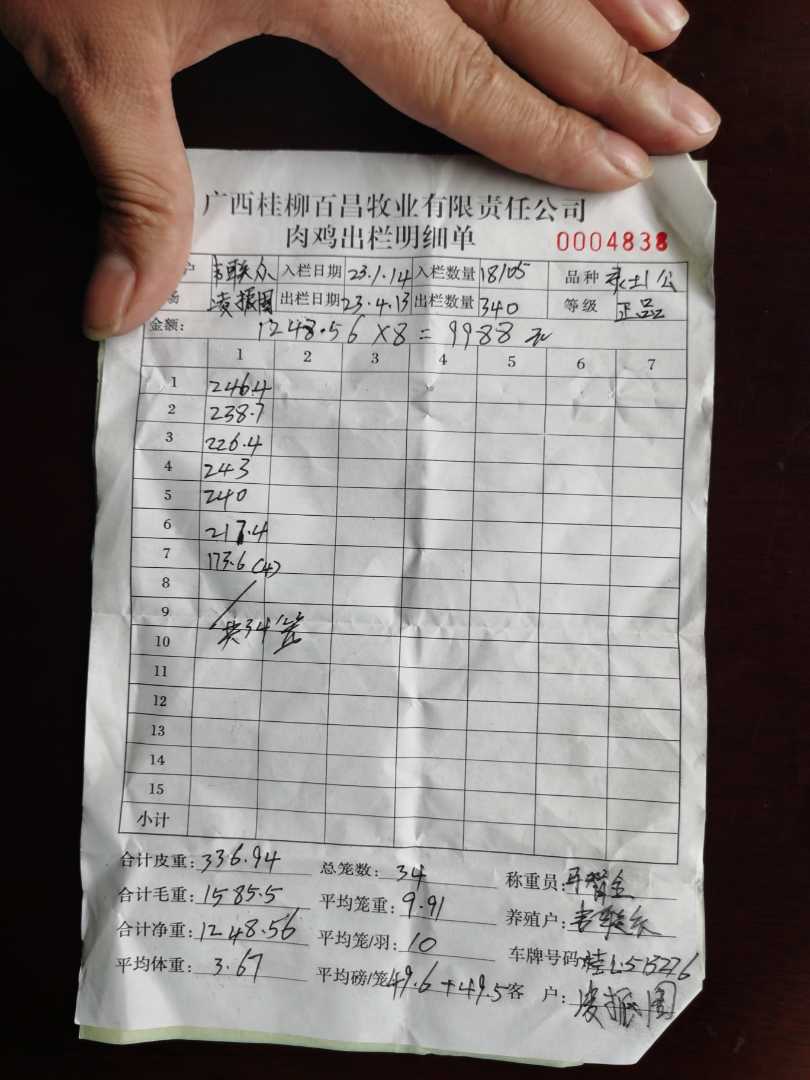 广西桂柳百昌牧业有限责任公司
肉鸡出栏明细单 0004838
户 韦联众 入栏日期 23.1.14 入栏数量 18105 品种 土公
场 凌振国 出栏日期 23.4.13 出栏数量 340 等级 正品
金额: 1248.56×8=9988元
1 2 3 4 5 6 7
1 246.4
2 238.7
3 226.4
4 243
5 240
6 217.4
7 173.6(4)
8
9
10 共34笼
11
12
13
14
15
小计
合计皮重: 336.94 总笼数: 34 称重员:
合计毛重: 1585.5 平均笼重: 9.91 养殖户: 韦联众
合计净重: 1248.56 平均笼/羽: 10 车牌号码: 桂L513226
平均体重: 3.67 平均磅/笼 49.6+49.5 客 户: 凌振国